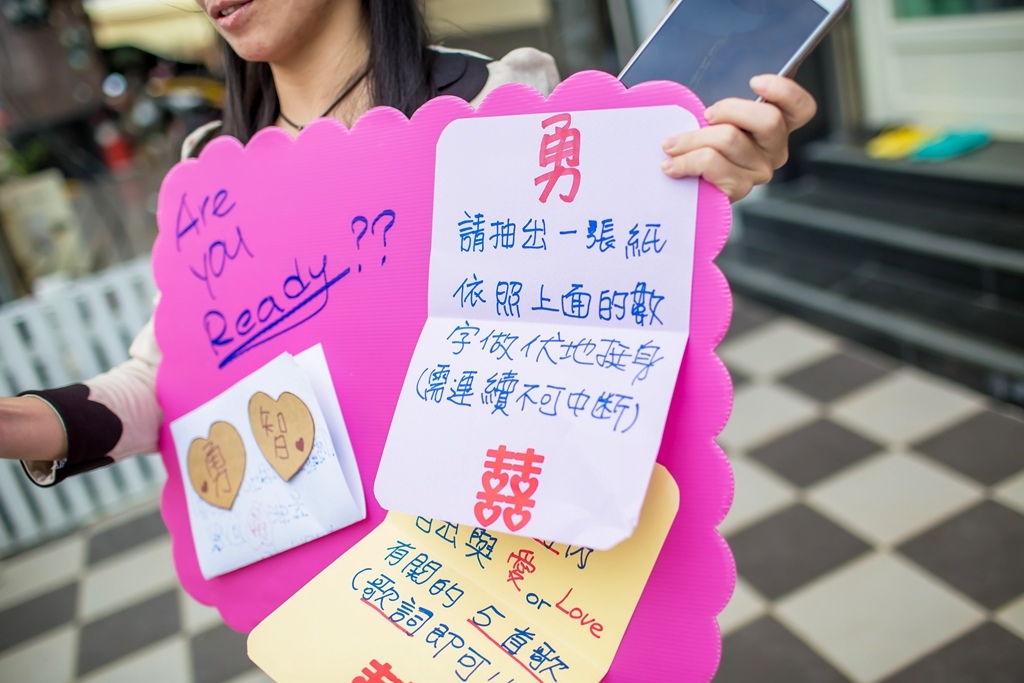 Are
you
Ready??
勇
智
勇
請抽出一張紙
依照上面的數
字做伏地挺身
(需連續不可中斷)
囍
出與
愛 or Love
有關的5首歌
(歌詞即可
囍